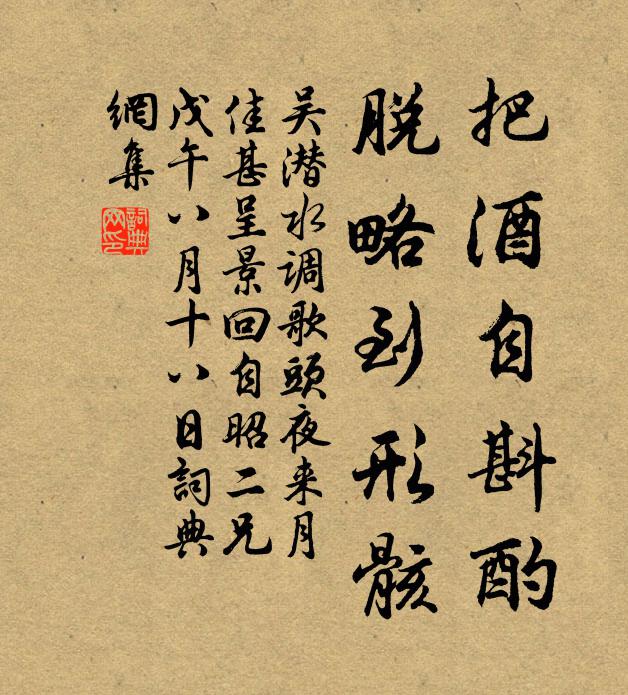 把酒自斟酌
脱略到形骸
吴潜水调歌头夜来月
佳甚呈景回自昭二兄
戊午八月十八日詞典
網集
詞典
网印